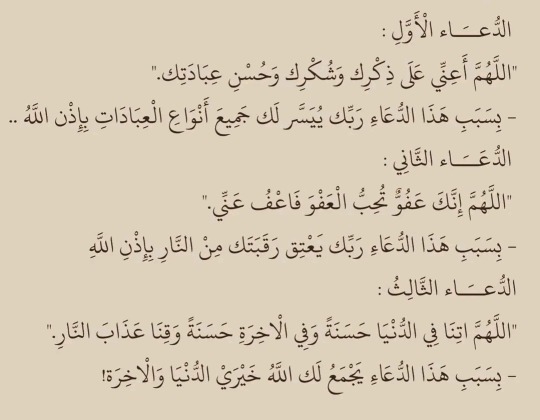 الدُّعَـــاء الْأَوَّلِ :
"اللَّهُمَّ أَعِنِّي عَلَى ذِكْرِك وَشُكْرِك وَحُسْنِ عِبَادَتِك."
– بِسَبَبِ هَذَا الدُّعَاءِ رَبِّك يُيَسَّر لَك جَمِيعَ أَنْوَاعِ الْعِبَادَاتِ بِإِذْن اللَّهُ ..
الدُّعَـــاء الثَّانِي :
"اللَّهُمَّ إِنَّكَ عَفُوٌّ تُحِبُّ الْعَفْوَ فَاعْفُ عَنِّي."
– بِسَبَبِ هَذَا الدُّعَاءِ رَبِّك يَعْتِق رَقَبَتَك مِنْ النَّارِ بِإِذْنِ اللَّهِ
الدُّعَـــاء الثَّالِثُ :
"اللَّهُمَّ اتِنَا فِي الدُّنْيَا حَسَنَةً وَفِي الْاخِرَةِ حَسَنَةً وَقِنَا عَذَابَ النَّارِ."
– بِسَبَبِ هَذَا الدُّعَاءِ يَجْمَعُ لَك اللَّهُ خَيْرَيْ الدُّنْيَا وَالْاخِرَة!